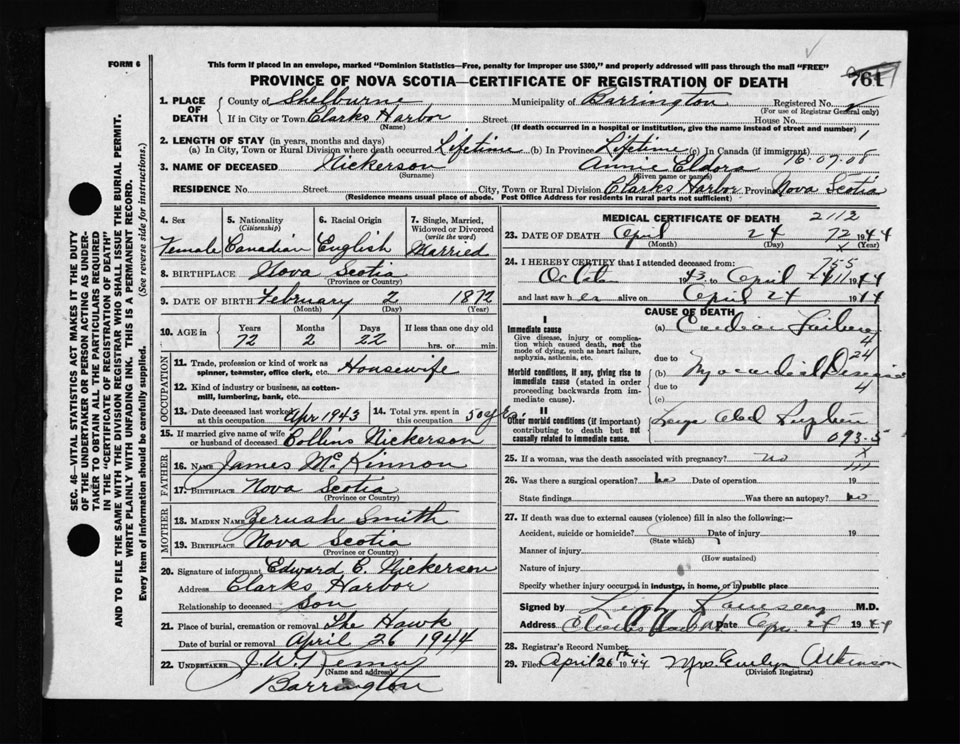 FORM 6
This form if placed in an envelope, marked "Dominion Statistics—Free, penalty for improper use $300," and properly addressed will pass through the mail "FREE"
PROVINCE OF NOVA SCOTIA—CERTIFICATE OF REGISTRATION OF DEATH
761
1. PLACE OF DEATH
County of Shelburne Municipality of Barrington Registered No.
(For use of Registrar General only)
If in City or Town Clarks Harbor Street House No.
(Name) (If death occurred in a hospital or institution, give the name instead of street and number)
2. LENGTH OF STAY (in years, months and days)
(a) In City, Town or Rural Division where death occurred Lifetime (b) In Province Lifetime (c) In Canada (if immigrant)
3. NAME OF DECEASED Nickerson Annie Eldora 76-07-08
(Surname) (Given name or names)
RESIDENCE No. Street City, Town or Rural Division Clarks Harbor Province Nova Scotia
(Residence means usual place of abode. Post Office Address for residents in rural parts not sufficient)
4. Sex
Female
5. Nationality
(Citizenship)
Canadian
6. Racial Origin
English
7. Single, Married, Widowed or Divorced
(write the word)
Married
8. BIRTHPLACE Nova Scotia
(Province or Country)
9. DATE OF BIRTH February 2 1872
(Month) (Day) (Year)
10. AGE in
Years Months Days If less than one day old
72 2 22 hrs. or min.
OCCUPATION
11. Trade, profession or kind of work as spinner, teamster, office clerk, etc. Housewife
12. Kind of industry or business, as cotton-mill, lumbering, bank, etc.
13. Date deceased last worked at this occupation Apr 1943
14. Total yrs. spent in this occupation 50 yrs.
15. If married give name of wife or husband of deceased Collins Nickerson
FATHER
16. NAME James McKinnon
17. BIRTHPLACE Nova Scotia
(Province or Country)
MOTHER
18. MAIDEN NAME Zeruah Smith
19. BIRTHPLACE Nova Scotia
(Province or Country)
20. Signature of informant Edward E. Nickerson
Address Clarks Harbor
Relationship to deceased Son
21. Place of burial, cremation or removal The Hawk
Date of burial or removal April 26 1944
22. UNDERTAKER
Barrington
MEDICAL CERTIFICATE OF DEATH 2112
23. DATE OF DEATH April 24 72 1944
(Month) (Day) (Year)
755
24. I HEREBY CERTIFY that I attended deceased from:
1943 to April 1944
and last saw her alive on April 24 1944
CAUSE OF DEATH
I
Immediate cause
Give disease, injury or complication which caused death, not the mode of dying, such as heart failure, asphyxia, asthenia, etc.
(a) Cardiac Failure
4
due to 24
Morbid conditions, if any, giving rise to immediate cause (stated in order proceeding backwards from immediate cause).
(b) Myocardial Disease
due to 4
(c)
II
Other morbid conditions (if important) contributing to death but not causally related to immediate cause.
093-5
25. If a woman, was the death associated with pregnancy? no
26. Was there a surgical operation? no Date of operation 19
State findings Was there an autopsy? no
27. If death was due to external causes (violence) fill in also the following:—
Accident, suicide or homicide? Date of injury 19
(State which)
Manner of injury
(How sustained)
Nature of injury
Specify whether injury occurred in industry, in home, or in public place
Signed by M.D.
Address Date Apr. 24 1944
28. Registrar's Record Number
29. Filed April 26th 1944 Mrs. Evelyn Atkinson
(Division Registrar)
SEC. 46—VITAL STATISTICS ACT MAKES IT THE DUTY
OF THE UNDERTAKER OR PERSON ACTING AS UNDER-
TAKER TO OBTAIN ALL THE PARTICULARS REQUIRED
IN THE "CERTIFICATE OF REGISTRATION OF DEATH"
AND TO FILE THE SAME WITH THE DIVISION REGISTRAR WHO SHALL ISSUE THE BURIAL PERMIT.
WRITE PLAINLY WITH UNFADING INK. THIS IS A PERMANENT RECORD.
Every item of information should be carefully supplied. (See reverse side for instructions.)